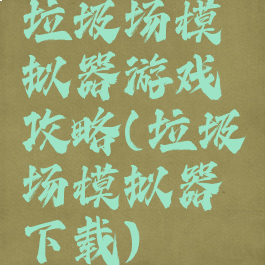 垃圾场模
拟器游戏
攻略(垃圾
场模拟器
下载)